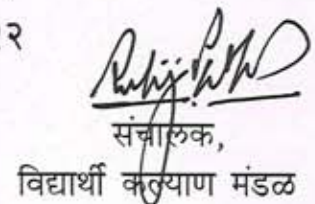 २
संचालक,
विद्यार्थी कल्याण मंडळ